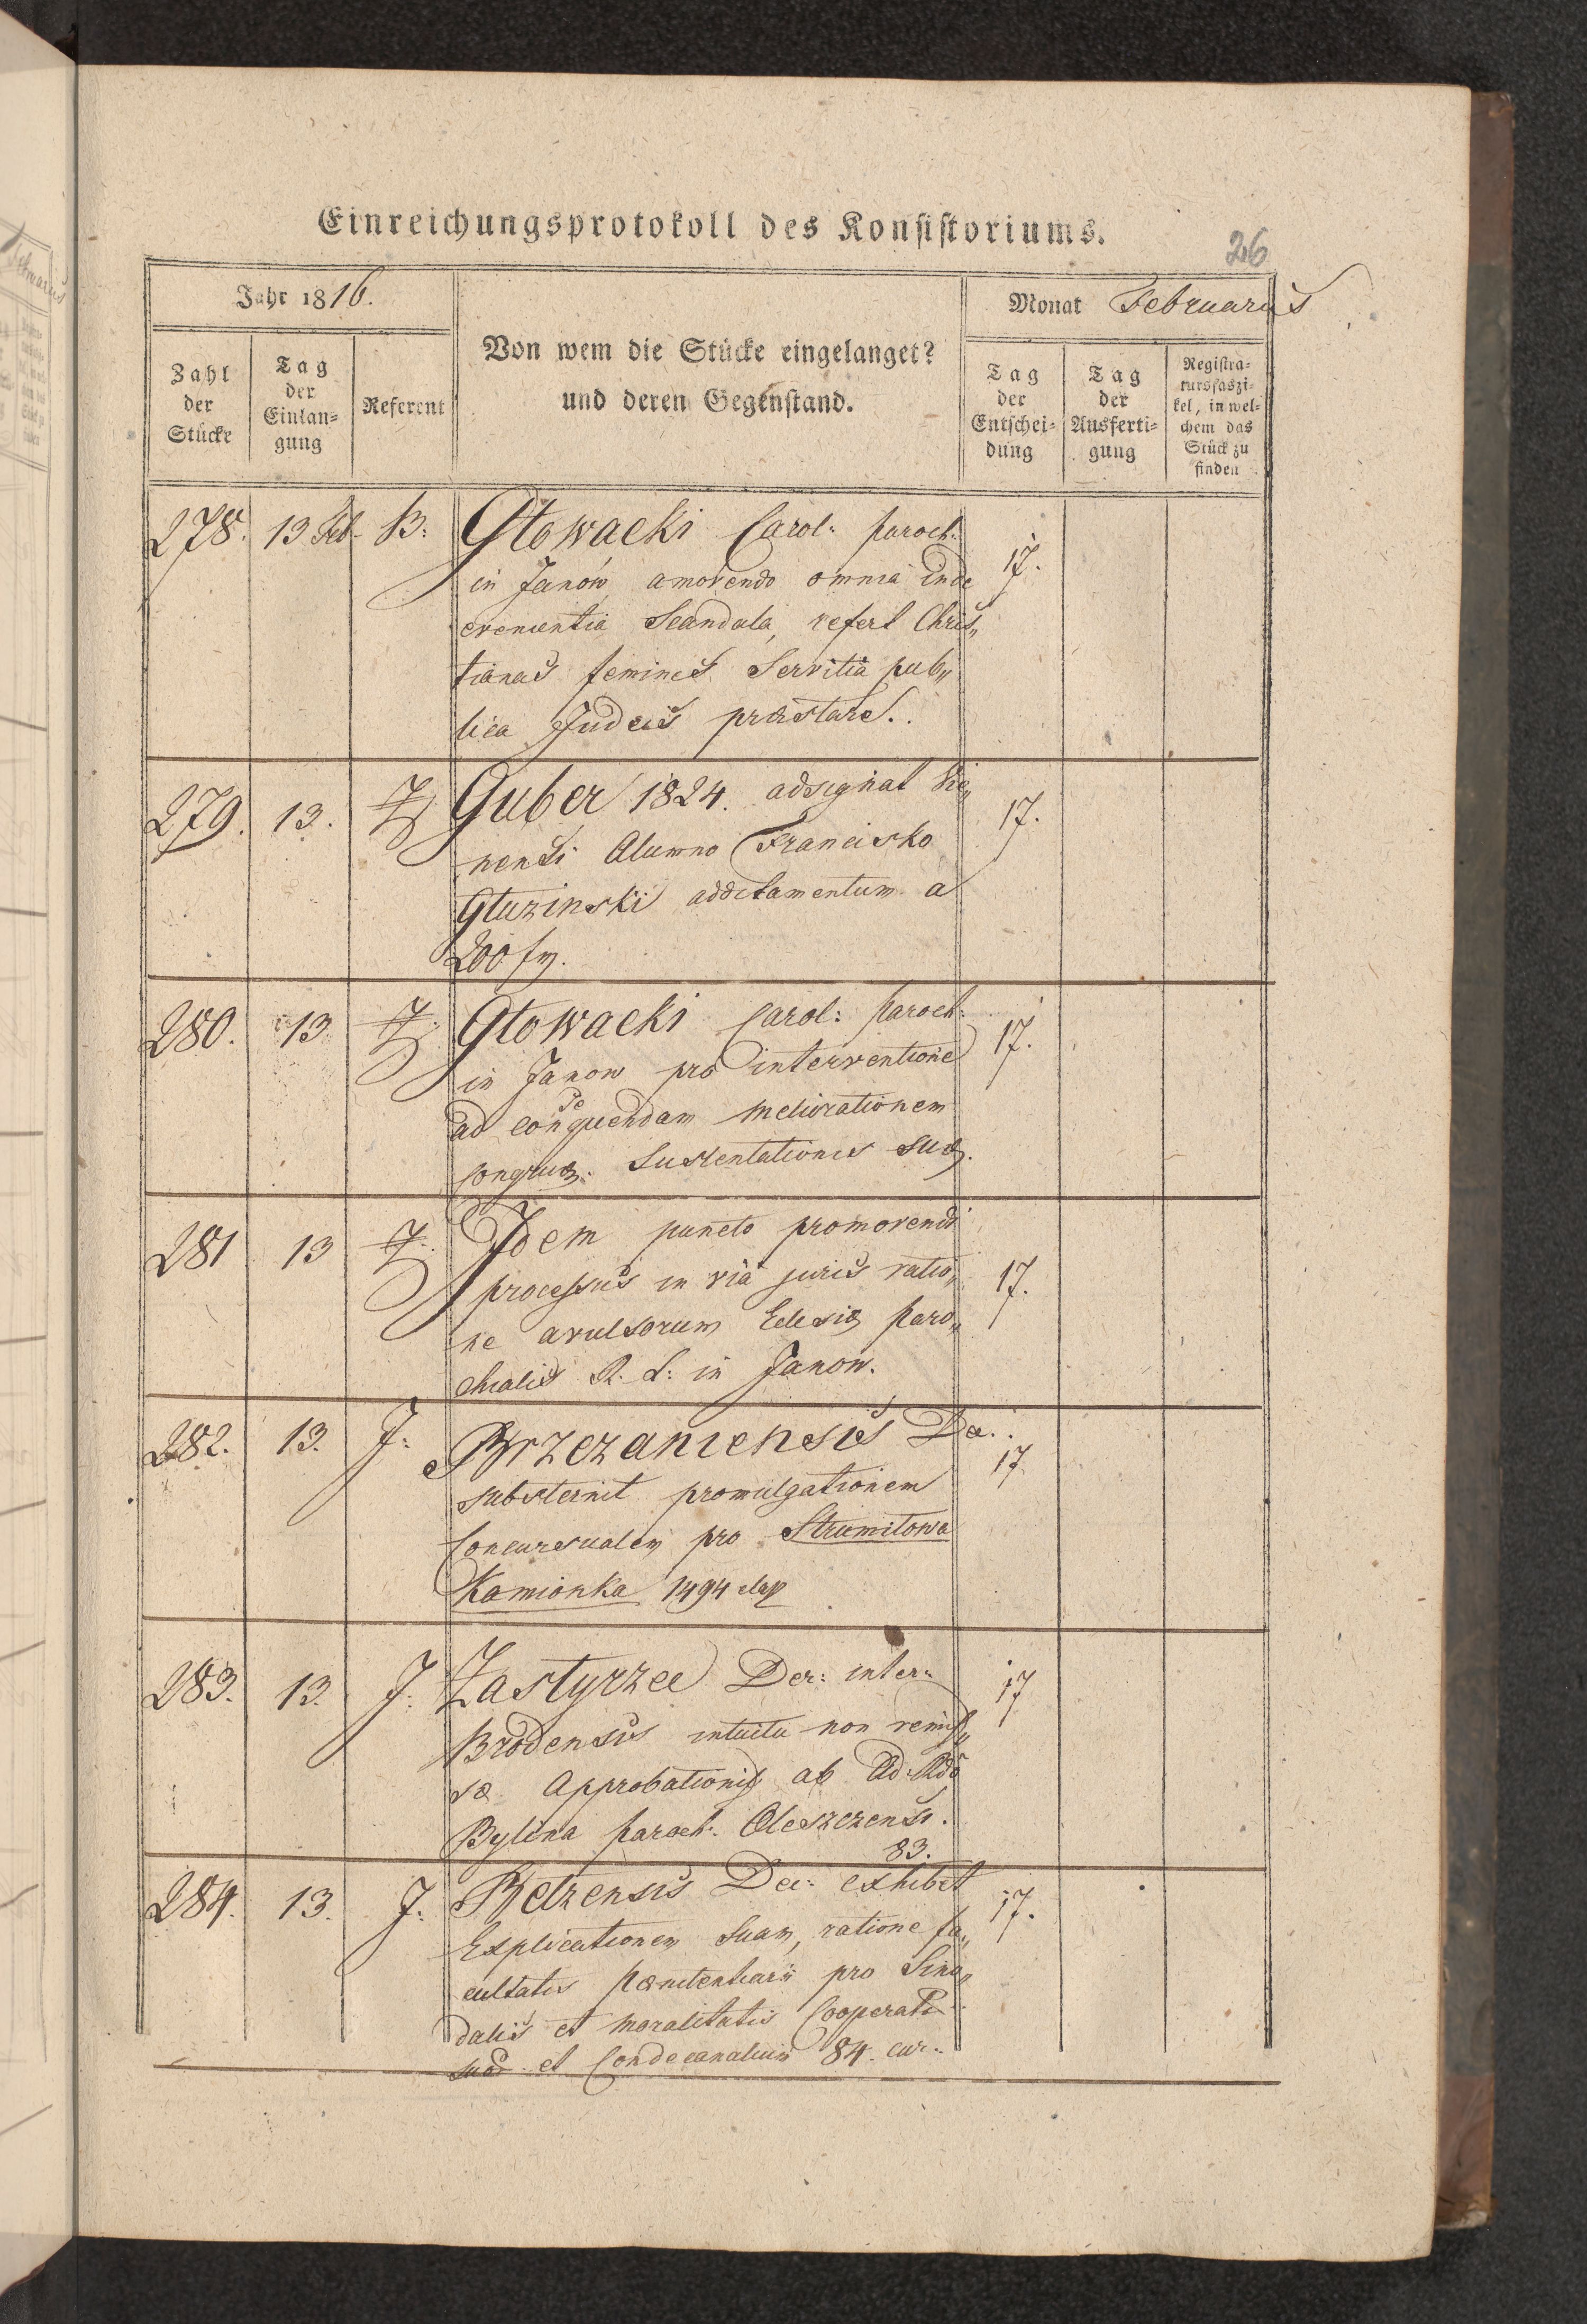 Einreichungsprotokoll des Konsistoriums.
26
Jahr 1816.
Von wem die Stücke eingelanget?
und deren Gegenstand.
Monat Februarius
Zahl
der
Stücke
Tag
der
Einlan-
gung
Referent
Tag
der
Entschei-
dung
Tag
der
Ausferti-
gung
Registra-
tursfaszi-
kel, in wel-
chem das
Stück zu
finden
278. 13 Feb. B: Głowacki Carol: Paroch: 17.
in Janów amovendo omnia inde
evenientia Scandala, refert Chris„
tianas feminas Servitia pub„
lica Judeis præstare.
279. 13. Z Guber 1824. adsignat Vie„ 17.
nensi Alumno Francisko
Głuzinski additamentum a
200 fr.
280. 13 Z. Głowacki Carol: Paroch: 17.
in Janow pro interventione
se
ad conquendam meliorationem
congruæ Sustentationis suæ.
281 13 Z. Idem puncto promovendi
processus in via juris ratio„ 17.
ne avulsorum Eclesiæ Paro„
chialis R. L: in Janow.
282. 13. J: Brzezaniensis De.: 17
substernit promulgationem
Concursualem pro Strumiłowa
Kamionka 1494 elap
283. 13. J: Zastyrzec Der: inter: 17
Brodensis intuitu non remiss„
sæ Approbationis ab Ad: Rdo
Bylina Paroch: Oleszczensi.
83.
284. 13. J: Betzensis Dec: exhibet 17.
Explicationem Suam, ratione fa„
cultatis Pænitentiarii pro Sino„
dalis et moralitatis Cooperat
suo et Condecanalium 84. cur: